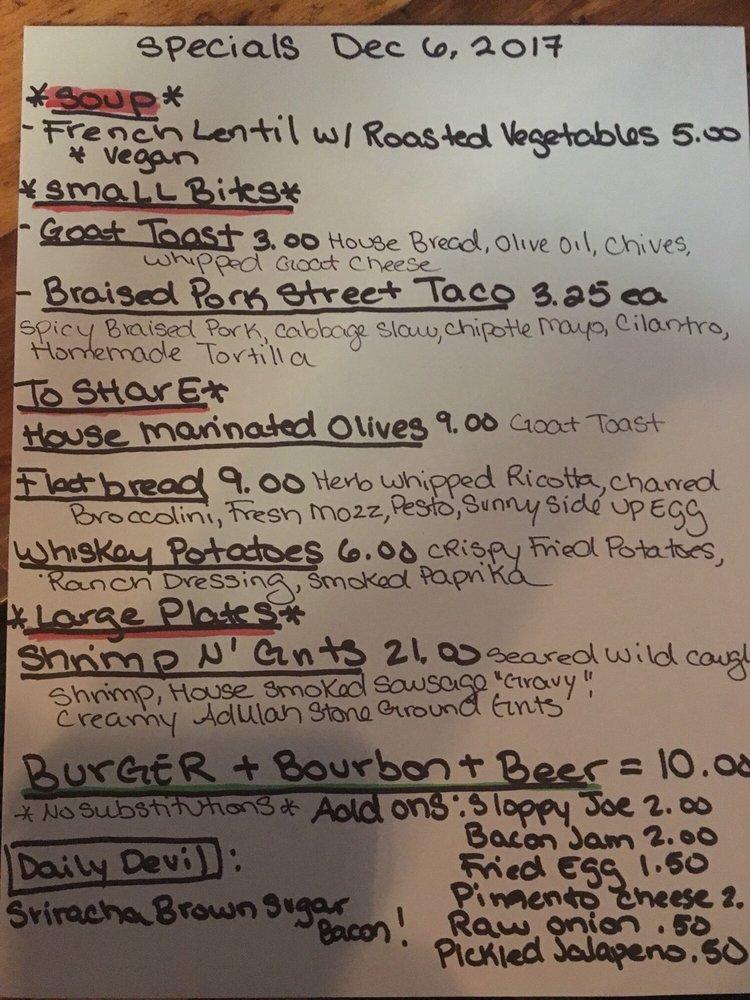 Specials Dec 6, 2017
*Soup*
- French Lentil w/ Roasted Vegetables 5.00
* Vegan
*Small Bites*
- Goat Toast 3.00 House Bread, Olive Oil, Chives,
Whipped Goat Cheese
- Braised Pork Street Taco 3.25 ea
Spicy Braised Pork, Cabbage Slaw, Chipotle Mayo, Cilantro,
Homemade Tortilla
To Share*
House Marinated Olives 9.00 Goat Toast
Flatbread 9.00 Herb Whipped Ricotta, Charred
Broccolini, Fresh Mozz, Pesto, Sunny Side Up Egg
Whiskey Potatoes 6.00 Crispy Fried Potatoes,
Ranch Dressing, Smoked Paprika
*Large Plates*
Shrimp N' Grits 21.00 Seared Wild Caugh
Shrimp, House Smoked Sausage "Gravy",
Creamy Adluh Stone Ground Grits
Burger + Bourbon + Beer = 10.00
*No Substitutions* Add ons: Sloppy Joe 2.00
Bacon Jam 2.00
Fried Egg 1.50
Pimento Cheese 2.
Raw Onion .50
Pickled Jalapeno .50
Daily Devil:
Sriracha Brown Sugar
Bacon!